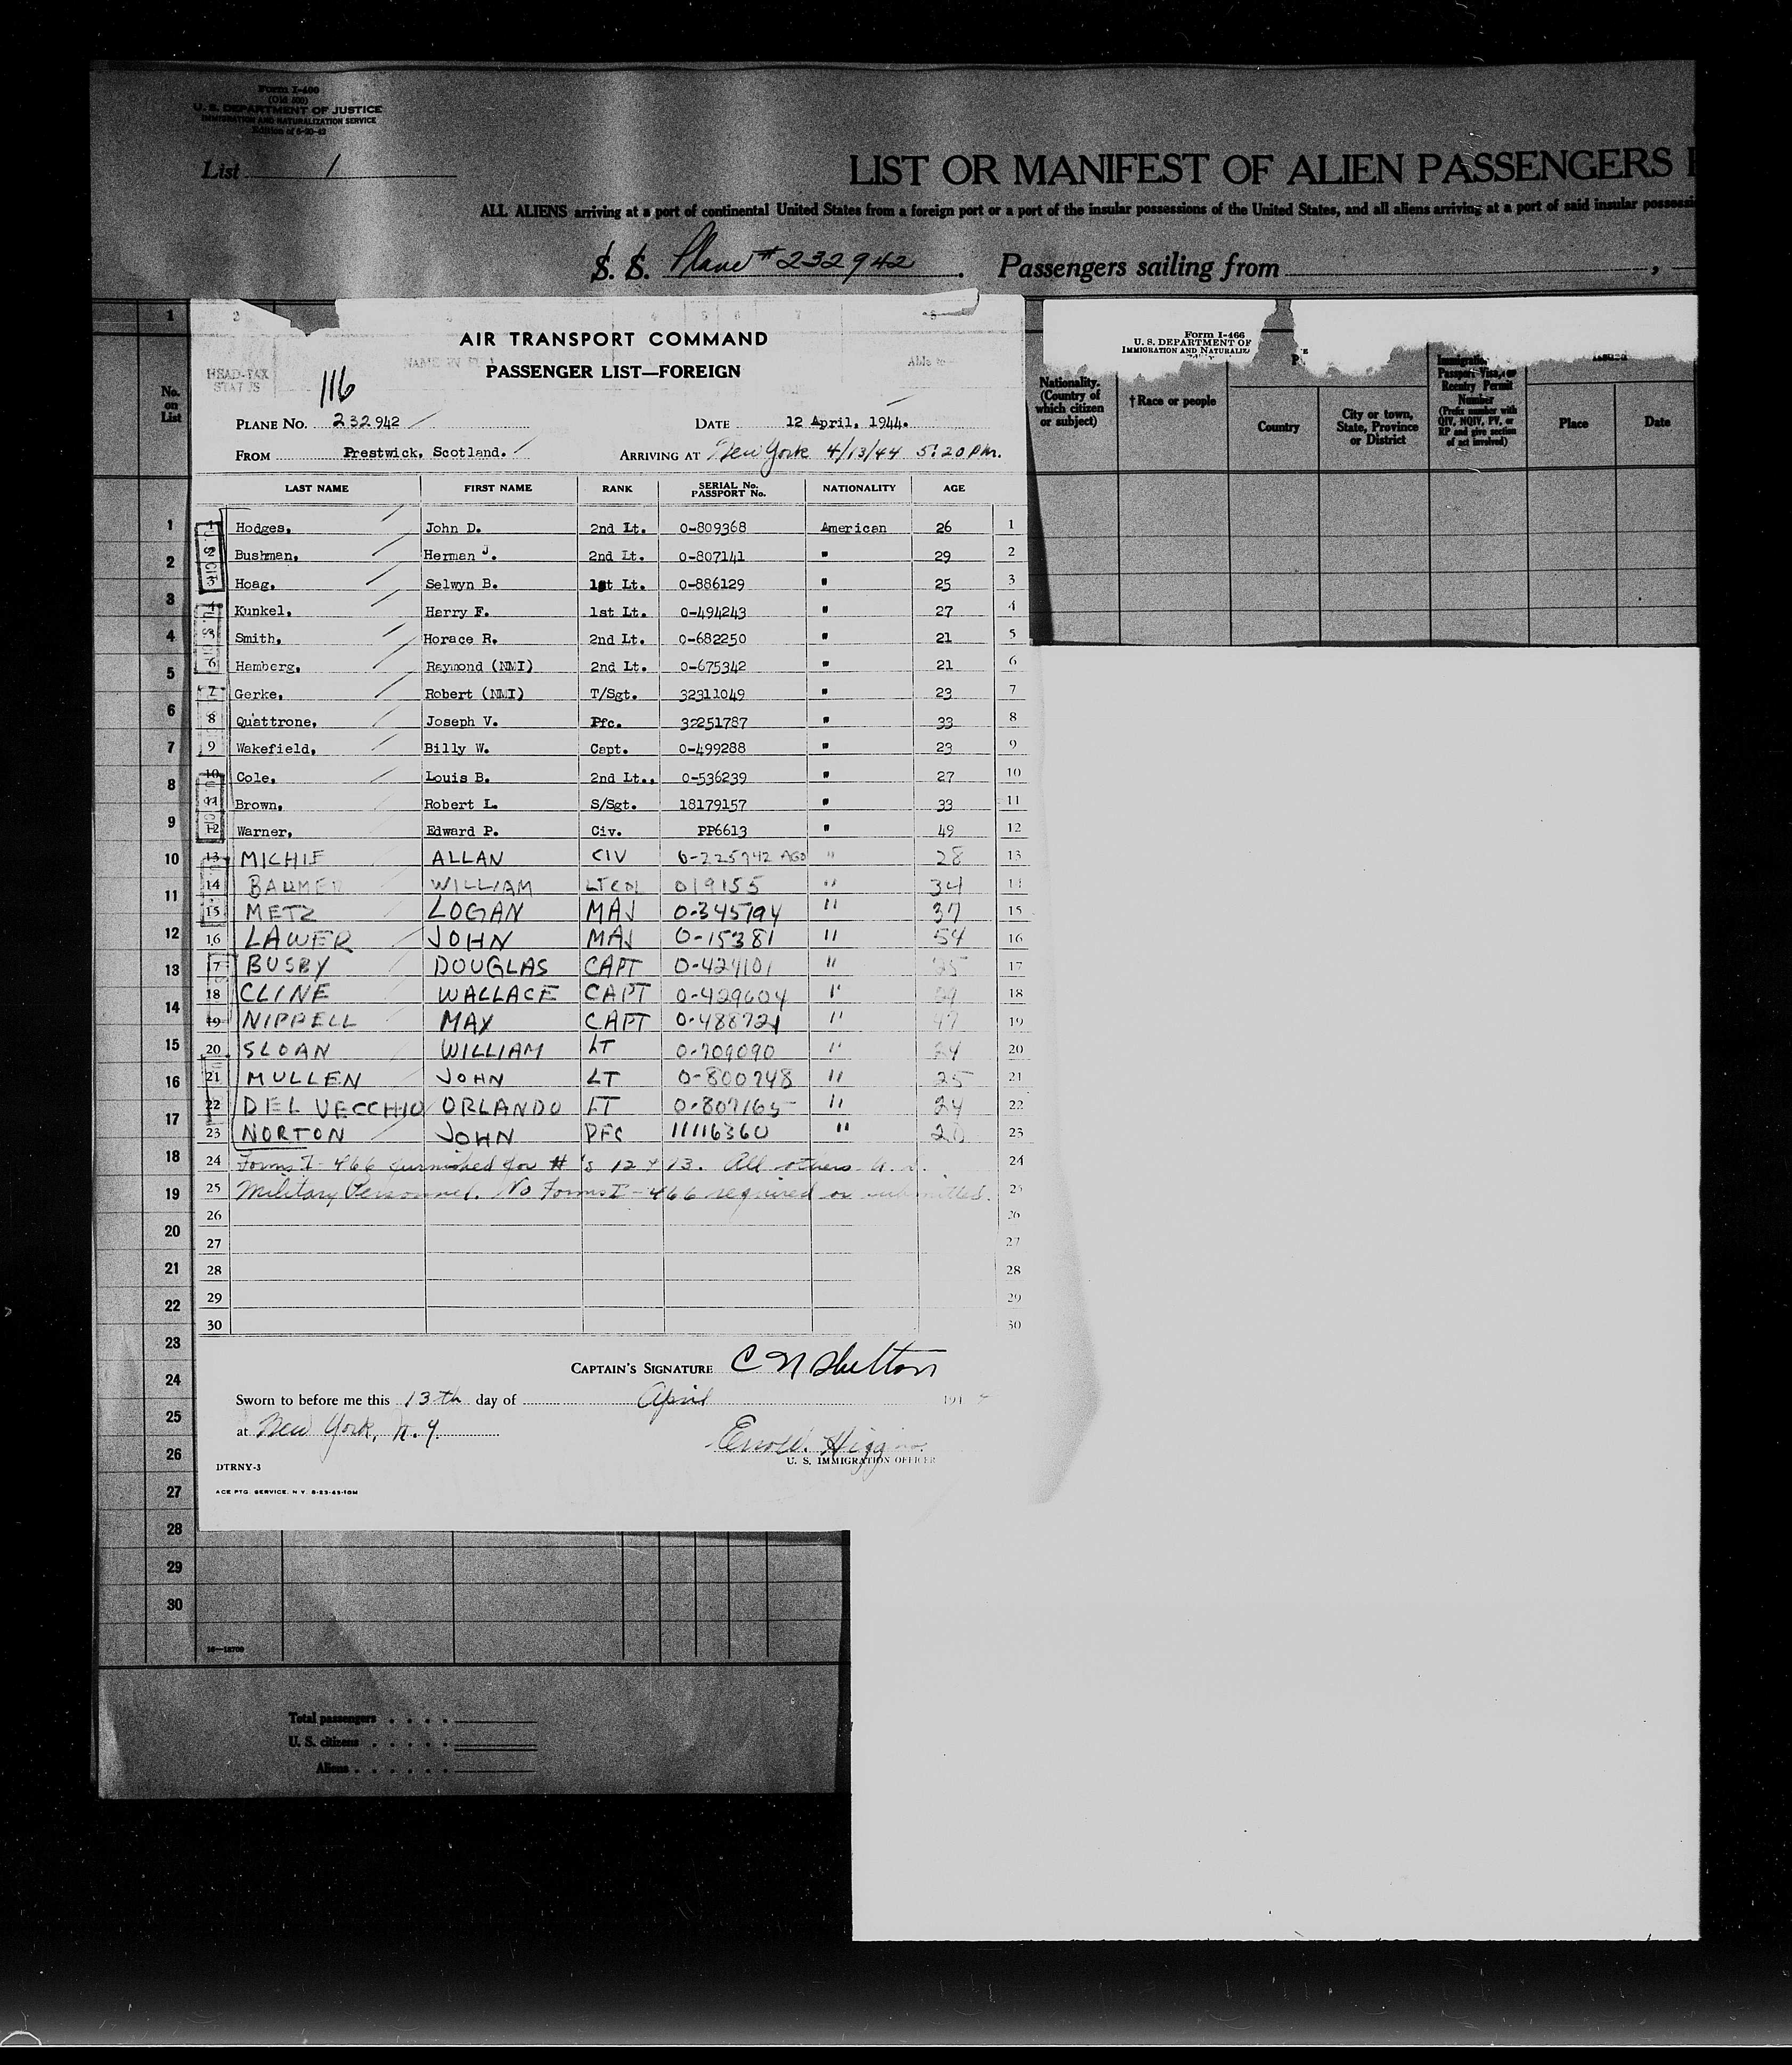 Form I-466
(Old 500)
U. S. DEPARTMENT OF JUSTICE
IMMIGRATION AND NATURALIZATION SERVICE
List 1
LIST OR MANIFEST OF ALIEN PASSENGERS
ALL ALIENS arriving at a port of continental United States from a foreign port or a port of the insular possessions of the United States, and all aliens arriving at a port of said insular
S. S. Plane # 232942. Passengers sailing from
AIR TRANSPORT COMMAND
PASSENGER LIST—FOREIGN
HEAD-TAX
STATUS
116
PLANE No. 232942 DATE 12 April, 1944.
FROM Prestwick, Scotland. ARRIVING AT New York 4/13/44 5:20 P.M.
Form I-466
U. S. DEPARTMENT OF
IMMIGRATION AND
No. on List
Nationality. (Country of which citizen or subject)
†Race or people
Country
City or town, State, Province or District
Place
Date
LAST NAME FIRST NAME RANK SERIAL No. PASSPORT No. NATIONALITY AGE
1 Hodges, John D. 2nd Lt. 0-809368 American 26 1
2 Bushman, Herman J. 2nd Lt. 0-807141 " 29 2
3 Hoag, Selwyn B. 1st Lt. 0-886129 " 25 3
4 Kunkel, Harry F. 1st Lt. 0-494243 " 27 4
5 Smith, Horace R. 2nd Lt. 0-682250 " 21 5
6 Hamberg, Raymond (NMI) 2nd Lt. 0-675342 " 21 6
7 Gerke, Robert (NMI) T/Sgt. 32311049 " 23 7
8 Quattrone, Joseph V. Pfc. 32251787 " 33 8
9 Wakefield, Billy W. Capt. 0-499288 " 23 9
10 Cole, Louis B. 2nd Lt., 0-536239 " 27 10
11 Brown, Robert L. S/Sgt. 18179157 " 33 11
12 Warner, Edward P. Civ. PP6613 " 49 12
13 MICHIE ALLAN CIV AGO " 28 13
14 BAUMER WILLIAM LT COL 019155 " 34 14
15 METZ LOGAN MAJ 0-345794 " 37 15
16 LAWER JOHN MAJ 0-15381 " 54 16
17 BUSBY DOUGLAS CAPT 0-424101 " 25 17
18 CLINE WALLACE CAPT 0-429604 " 18
19 NIPPELL MAX CAPT 0-488721 " 47 19
20 SLOAN WILLIAM LT 0-709090 " 24 20
21 MULLEN JOHN LT 0-800748 " 25 21
22 DEL VECCHIO ORLANDO LT 0-807165 " 24 22
23 NORTON JOHN PFC 11116360 " 20 23
24 Forms I-466 furnished for #'s 12 & 13. All others 24
25 Military Personnel. No Forms I-466 required or submitted. 25
26 26
27 27
28 28
29 29
30 30
CAPTAIN'S SIGNATURE C N Shelton
Sworn to before me this 13th day of April 194
at New York, N.Y.
U. S. IMMIGRATION OFFICER
DTRNY-3
ACE PTG. SERVICE, N. Y. 8-23-43-10M
1
2
3
4
5
6
7
8
9
10
11
12
13
14
15
16
17
18
19
20
21
22
23
24
25
26
27
28
29
30
Total passengers
U. S. citizens
Aliens